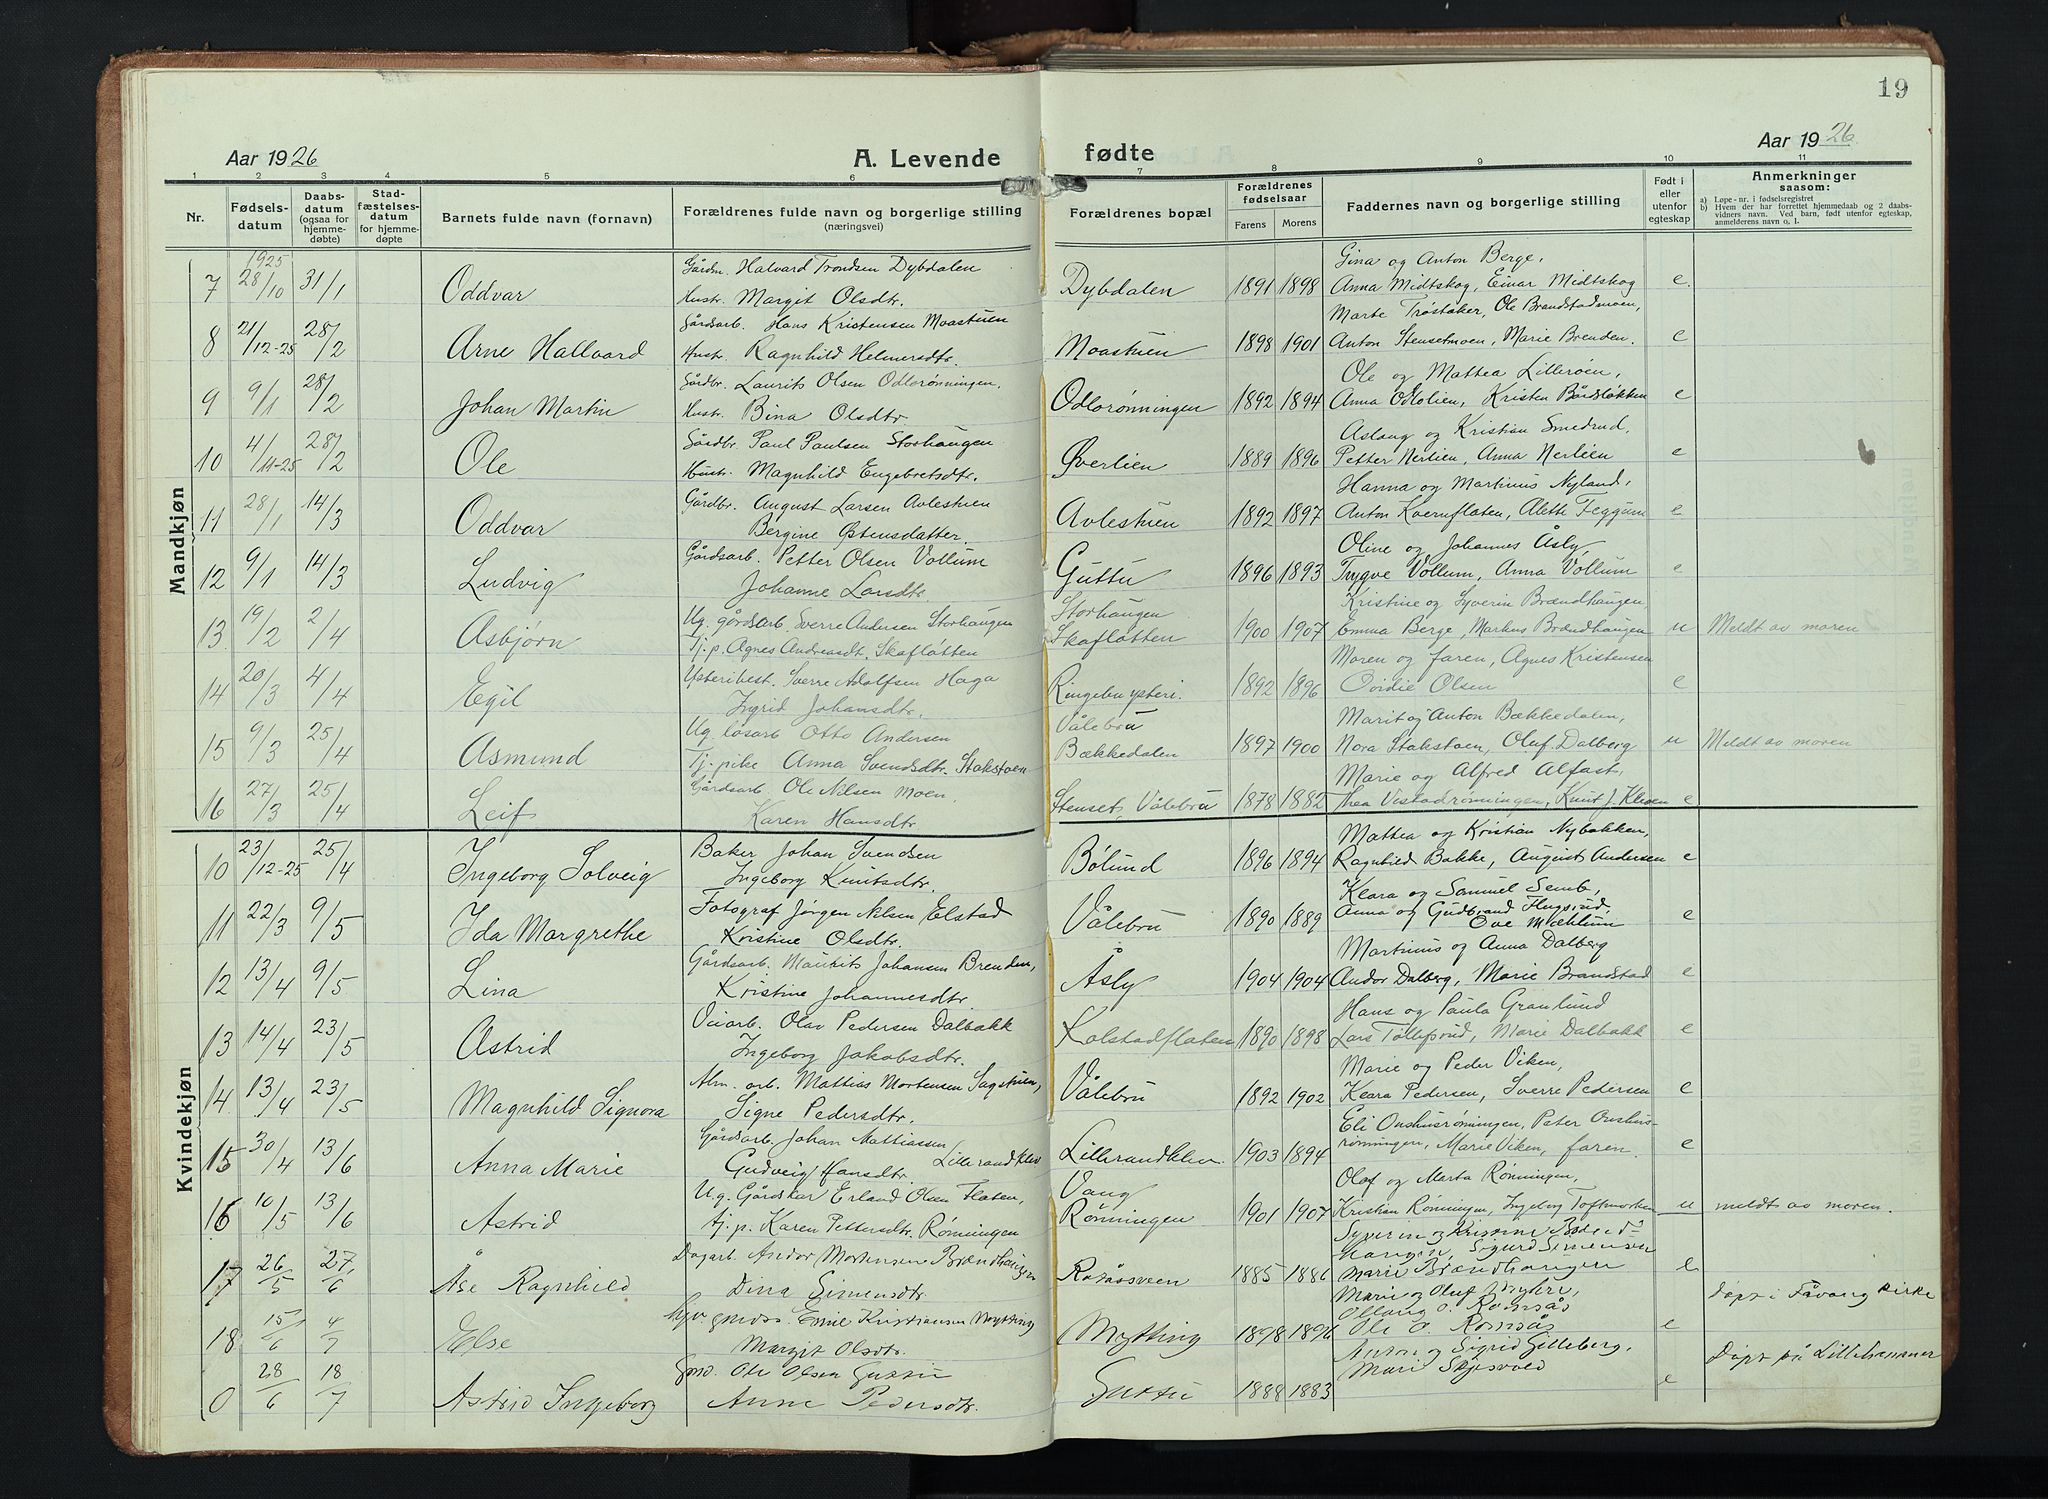 19
Aar 1926
A. Levende
fødte
Aar 1926
1 2 3 4 5 6 7 8 9 10 11
Nr.
Fødselsdatum
Daabsdatum (ogsaa for hjemmedøbte)
Stadfæstelsesdatum for hjemmedøpte
Barnets fulde navn (fornavn)
Forældrenes fulde navn og borgerlige stilling (næringsvei)
Forældrenes bopæl
Forældrenes fødselsaar
Farens Morens
Faddernes navn og borgerlige stilling
Født i eller utenfor egteskap
Anmerkninger saasom:
a) Løpe-nr. i fødselsregistret
b) Hvem der har forrettet hjemmedaab og 2 daabsvidners navn. Ved barn, født utenfor egteskap, anmelderens navn o. l.
Mandkjøn
1925
Gaardm. Halvard Trondsen Dybdalen Gina og Anton Berge,
7 28/10 31/1 Oddvar Hustr. Margit Olsdtr. Dybdalen 1891 1898 Anna Midtskog, Einar Midtskog e.
Gårdsarb. Hans Kristensen Moastuen Marte Trøståker, Ole Brandstadmoen,
8 21/12-25 28/2 Arne Hallvard Hust. Ragnhild Helmersdtr. Moastuen 1898 1901 Anton Stensetmoen, Marie Brenden. e
Gårdbr. Laurits Olsen Odlorønningen, Ole og Mattea Lillerøen,
9 9/1 28/2 Johan Martin Hustr. Bina Olsdtr. Odlorønningen 1892 1894 Anna Odlolien, Kristen Bårdsløkken e
Gårdbr. Paul Paulsen Storhaugen Aslaug og Kristian Smedrud,
10 4/11-25 28/2 Ole Hustr. Magnhild Engebretsdtr. Øverlien 1889 1896 Petter Nerlien, Anna Nerlien e
Gårdbr. August Larsen Avlestuen Hanna og Martinus Nyland,
11 28/1 14/3 Oddvar Bergine Østensdatter. Avlestuen 1892 1897 Anton Kvernflaten, Alette Feggum e
Gårdsarb. Petter Olsen Vollum Oline og Johannes Åsly,
12 9/1 14/3 Ludvig Johanne Larsdtr. Guttu 1896 1893 Trygve Vollum, Anna Vollum e
Ug. gårdsarb. Sverre Andersen Storhaugen Storhaugen Kristine og Syverin Brændhaugen,
13 19/2 2/4 Asbjørn Tj.p. Agnes Andreasdt. Skafløtten Skafløtten 1900 1907 Emma Berge, Markus Brændhaugen u Meldt av moren
Ysteribest. Sverre Adolfsen Haga Moren og faren, Agnes Kristensen
14 20/3 4/4 Egil Ingrid Johansdtr. Ringebu ysteri. 1892 1896 Olsen e
Ug. løsarb Otto Andersen Vålebru Marit og Anton Bækkedalen,
15 9/3 25/4 Asmund Tj.-pike Anna Svendsdtr. Stakstoen Bækkedalen 1897 1900 Nora Stakstoen, Oluf Dalberg u Meldt av moren
Gårdsarb Ole Nilsen Moen, Marie og Alfred Alfast,
16 27/3 25/4 Leif Karen Hansdtr Stenset, Vålebru 1878 1882 Thea Vestadrønningen, Knut J. Kleven e
Kvindekjøn
Baker Johan Svendsen Mattea og Kristian Nybakken,
10 23/12-25 25/4 Ingeborg Solveig Ingeborg Knutsdtr. Bølund 1896 1894 Ragnhild Bakke, August Andersen e
Fotograf Jørgen Nilsen Elstad Klara og Samuel Semb,
11 22/3 9/5 Ida Margrethe Kristine Olsdtr. Vålebru 1890 1889 Anna og Gudbrand Flugsrud, e
Ove Mæhlum
Gårdsarb. Maurits Johansen Brenden, Martinus og Anna Dalberg
12 13/4 9/5 Lina Kristine Johannesdtr. Åsly 1904 1904 Andor Dalberg, Marie Brandstad e
Veiarb. Olav Pedersen Dalbakk Hans og Paula Granlund
13 14/4 23/5 Astrid Ingeborg Jakobsdtr. Kolstadflaten 1890 1898 Lars Tollefsrud, Marie Dalbakk e
Alm. arb. Mattias Mortensen Sagstuen, Marie og Peder Viken,
14 13/4 23/5 Magnhild Signora Signe Pedersdtr. Vålebru 1892 1902 Klara Pedersen, Sverre Pedersen e
Gårdsarb. Johan Mattiassen Lillerandklev Eli Onshusrønningen, Peter Onshus-
15 30/4 13/6 Anna Marie Gudveig Hansdtr. Lillerandklev. 1903 1894 rønningen, Marie Viken, faren. e
Ug. Gårdskar Erland Olsen Flaten, Vang Olaf og Marta Rønningen,
16 10/5 13/6 Astrid tj.p. Karen Pettersdtr. Rønningen Rønningen 1901 1907 Kristian Rønningen, Ingeborg Toftmarken u meldt av moren.
Dagarb. Andor Mortensen Brændhaugen Syverin og Kristine Brænd-
haugen, Sigurd Simensen
17 26/5 27/6 Åse Ragnhild Dina Simensdtr. Råsåssveen 1885 1886 Marie Brændhaugen e
Einie Kristiansen Mytting Marie og Oluf Myhre, Døpt i Fåvang kirke
Ollaug O. Romsås
18 15/6 4/7 Else Margit Olsdtr. Mytting 1898 1896 Ole O. Romsås e
Gmd. Ole Olsen Guttu Anton og Sigrid Gilleberg, Døpt på Lillehammer
0 28/6 18/7 Astrid Ingeborg Anne Pedersdtr. Guttu 1888 1883 Mari Skjesvold e